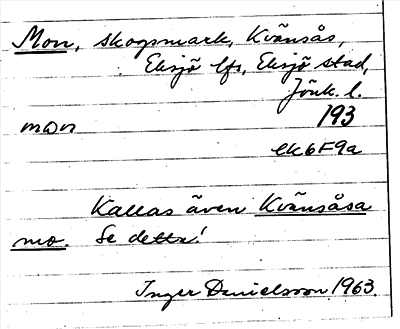 Mon, skogsmark, Kvänsås,
Eksjö lfs, Eksjö stad,
Jönk. l.
mωn 193
ek6F9a
Kallas även Kvänsåsa
mo. Se detta!
Inger Danielsson 1963.